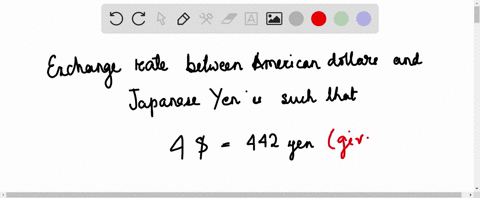 Exchange rate between American dollars and
Japanese Yen is such that
4 $ = 442 yen (giv.